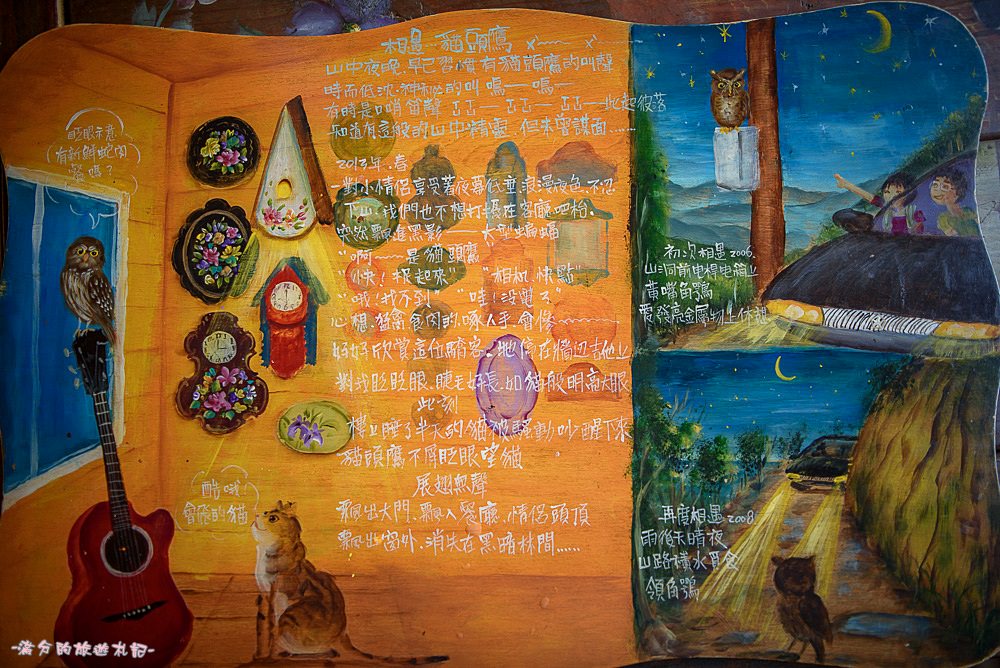 相遇 貓頭鷹
山中夜晚、早已習慣有貓頭鷹的叫聲
時而低沈、神祕的叫 嗚── 嗚──
有時是口哨笛聲 ── 此起彼落
知道有這般的山中精靈、但未曾謀面……
2013年、春
一對小情侶享受著夜幕低垂浪漫夜色、不忍
下山、我們也不想打擾在客廳吧枱、
突然飄進黑影──大型蝙蝠
“啊~~是貓頭鷹
“快！躲起來” “相机、快點”
“哦！找不到 “哇！沒電了”
心想、猛禽食肉的、啄人手會傷~~~
好好欣賞這位嬌客、牠停在牆边吉他上
對我眨眨眼、睫毛好長、如貓般明亮大眼
此刻
樓上睡了半天的貓被騷動吵醒下來
貓頭鷹不屑眨眼望貓
展翅無聲
飄出大門、飄入餐廳、情侶頭頂
飄出窗外、消失在黑暗林間……
眨眼示意
有新鮮蛇肉
餐嗎？
酷哦！
會飛的貓
初次相遇 2006
山洞前電桿電箱上
黃嘴角鴞
愛發亮金屬物上休憩
再度相遇 2008
雨後未晴夜
山路積水覓食
領角鴞
-滿分的旅遊札記-